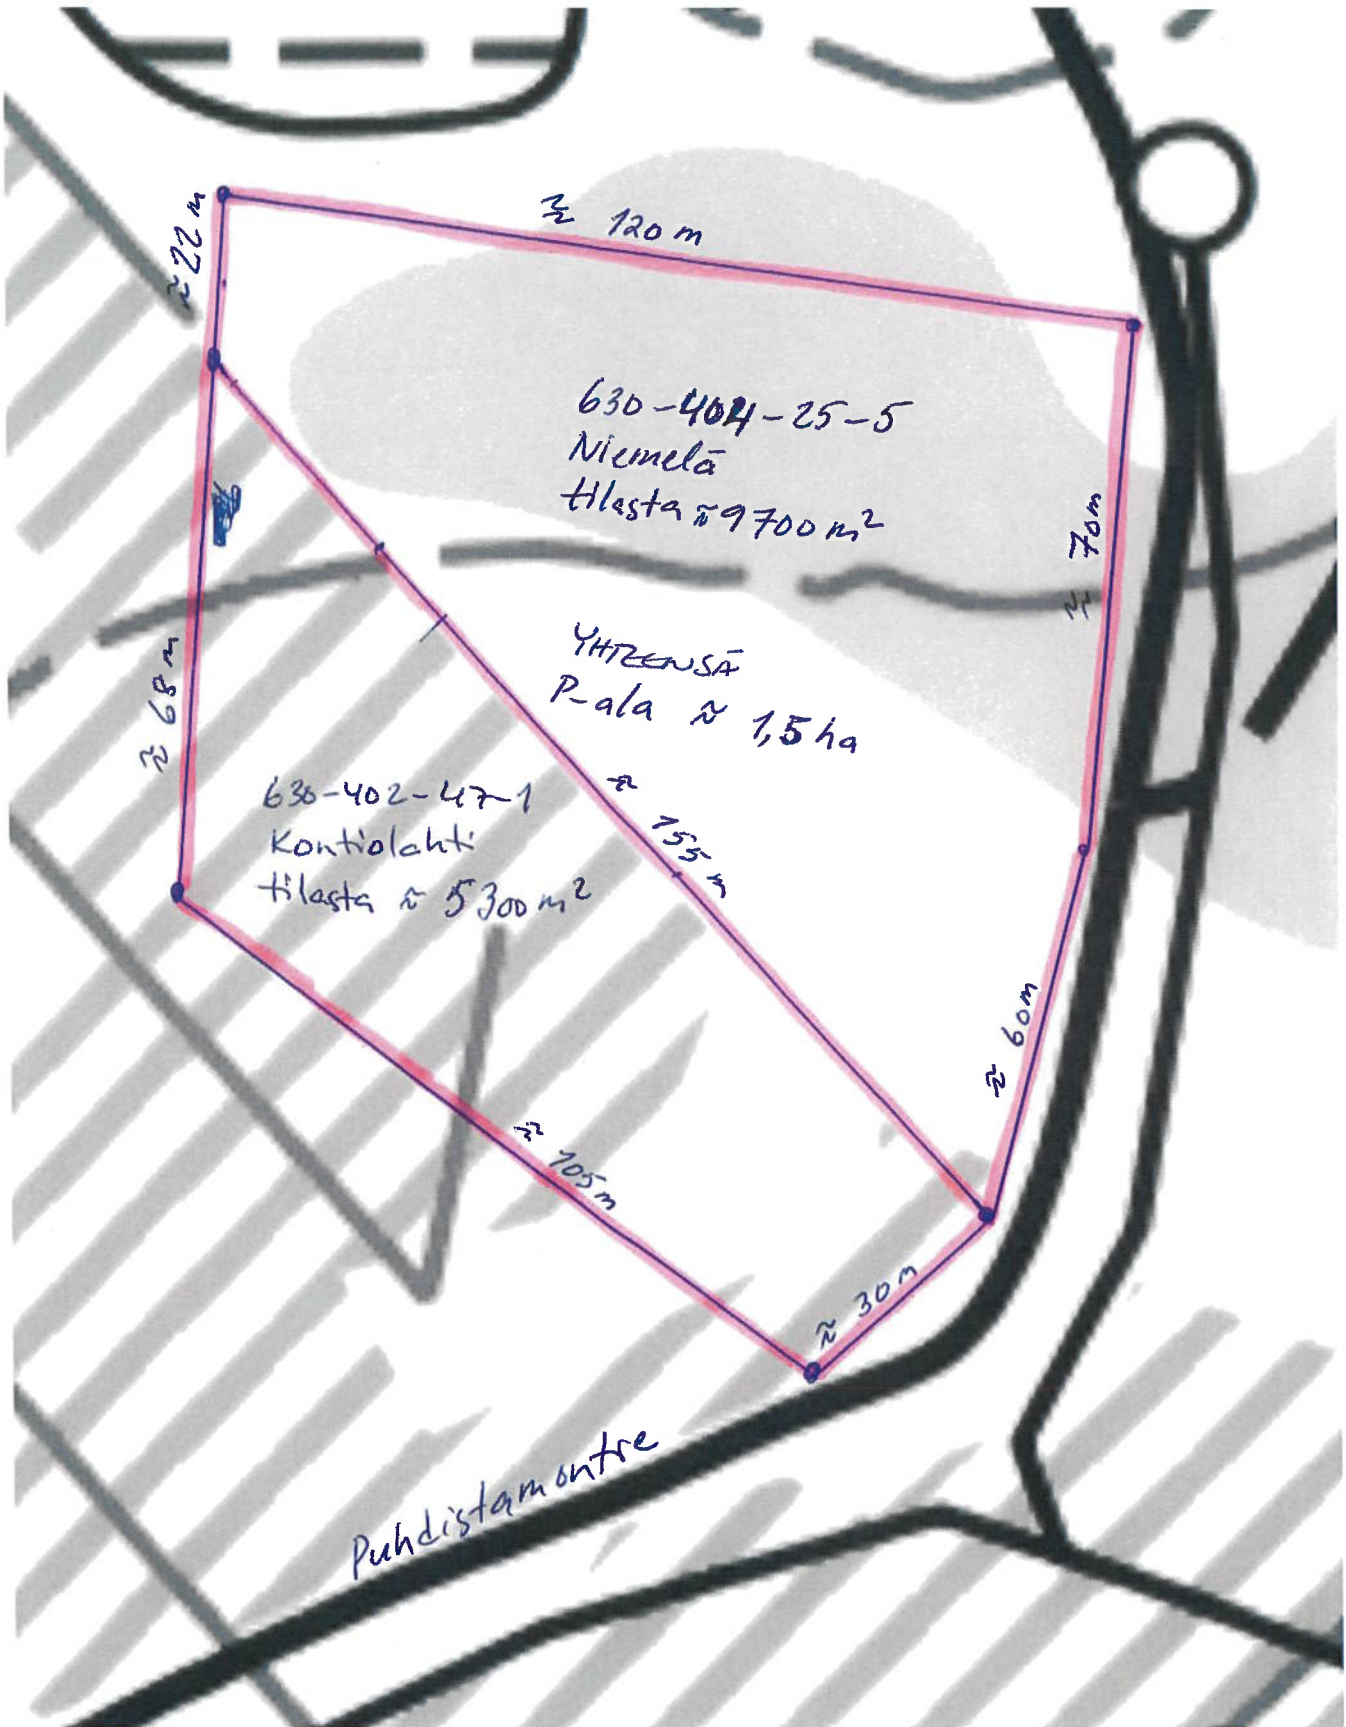 ≈ 22 m
≈ 120 m
630-404-25-5
Niemelä
tilasta ≈ 9700 m²
≈ 70m
YHTEENSÄ
P-ala ≈ 1,5 ha
≈ 68 m
630-402-47-1
Kontiolahti
tilasta ≈ 5300 m²
≈ 155 m
≈ 60m
≈ 105m
≈ 30 m
Puhdistamontie